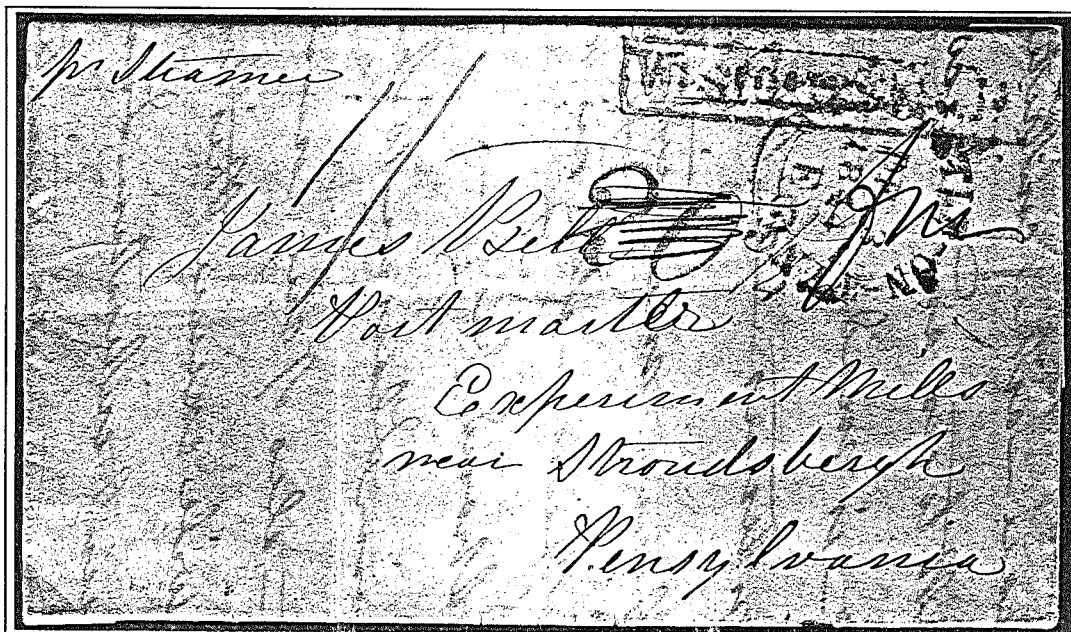 pr Steamer
James Bell
Jnr
Post master
Experiment Mills
near Stroudsbergh
Pensylvania